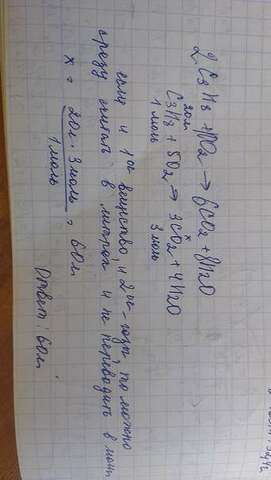 2. C3H8 + 10O2 → 6CO2 + 8H2O
20л x
C3H8 + 5O2 → 3CO2 + 4H2O
1 моль 3 моль
если и 1ое вещество, и 2ое - газы то можно
сразу считать в литрах и не переводить в моли
x = 20л · 3 моль / 1 моль = 60л
Ответ: 60л